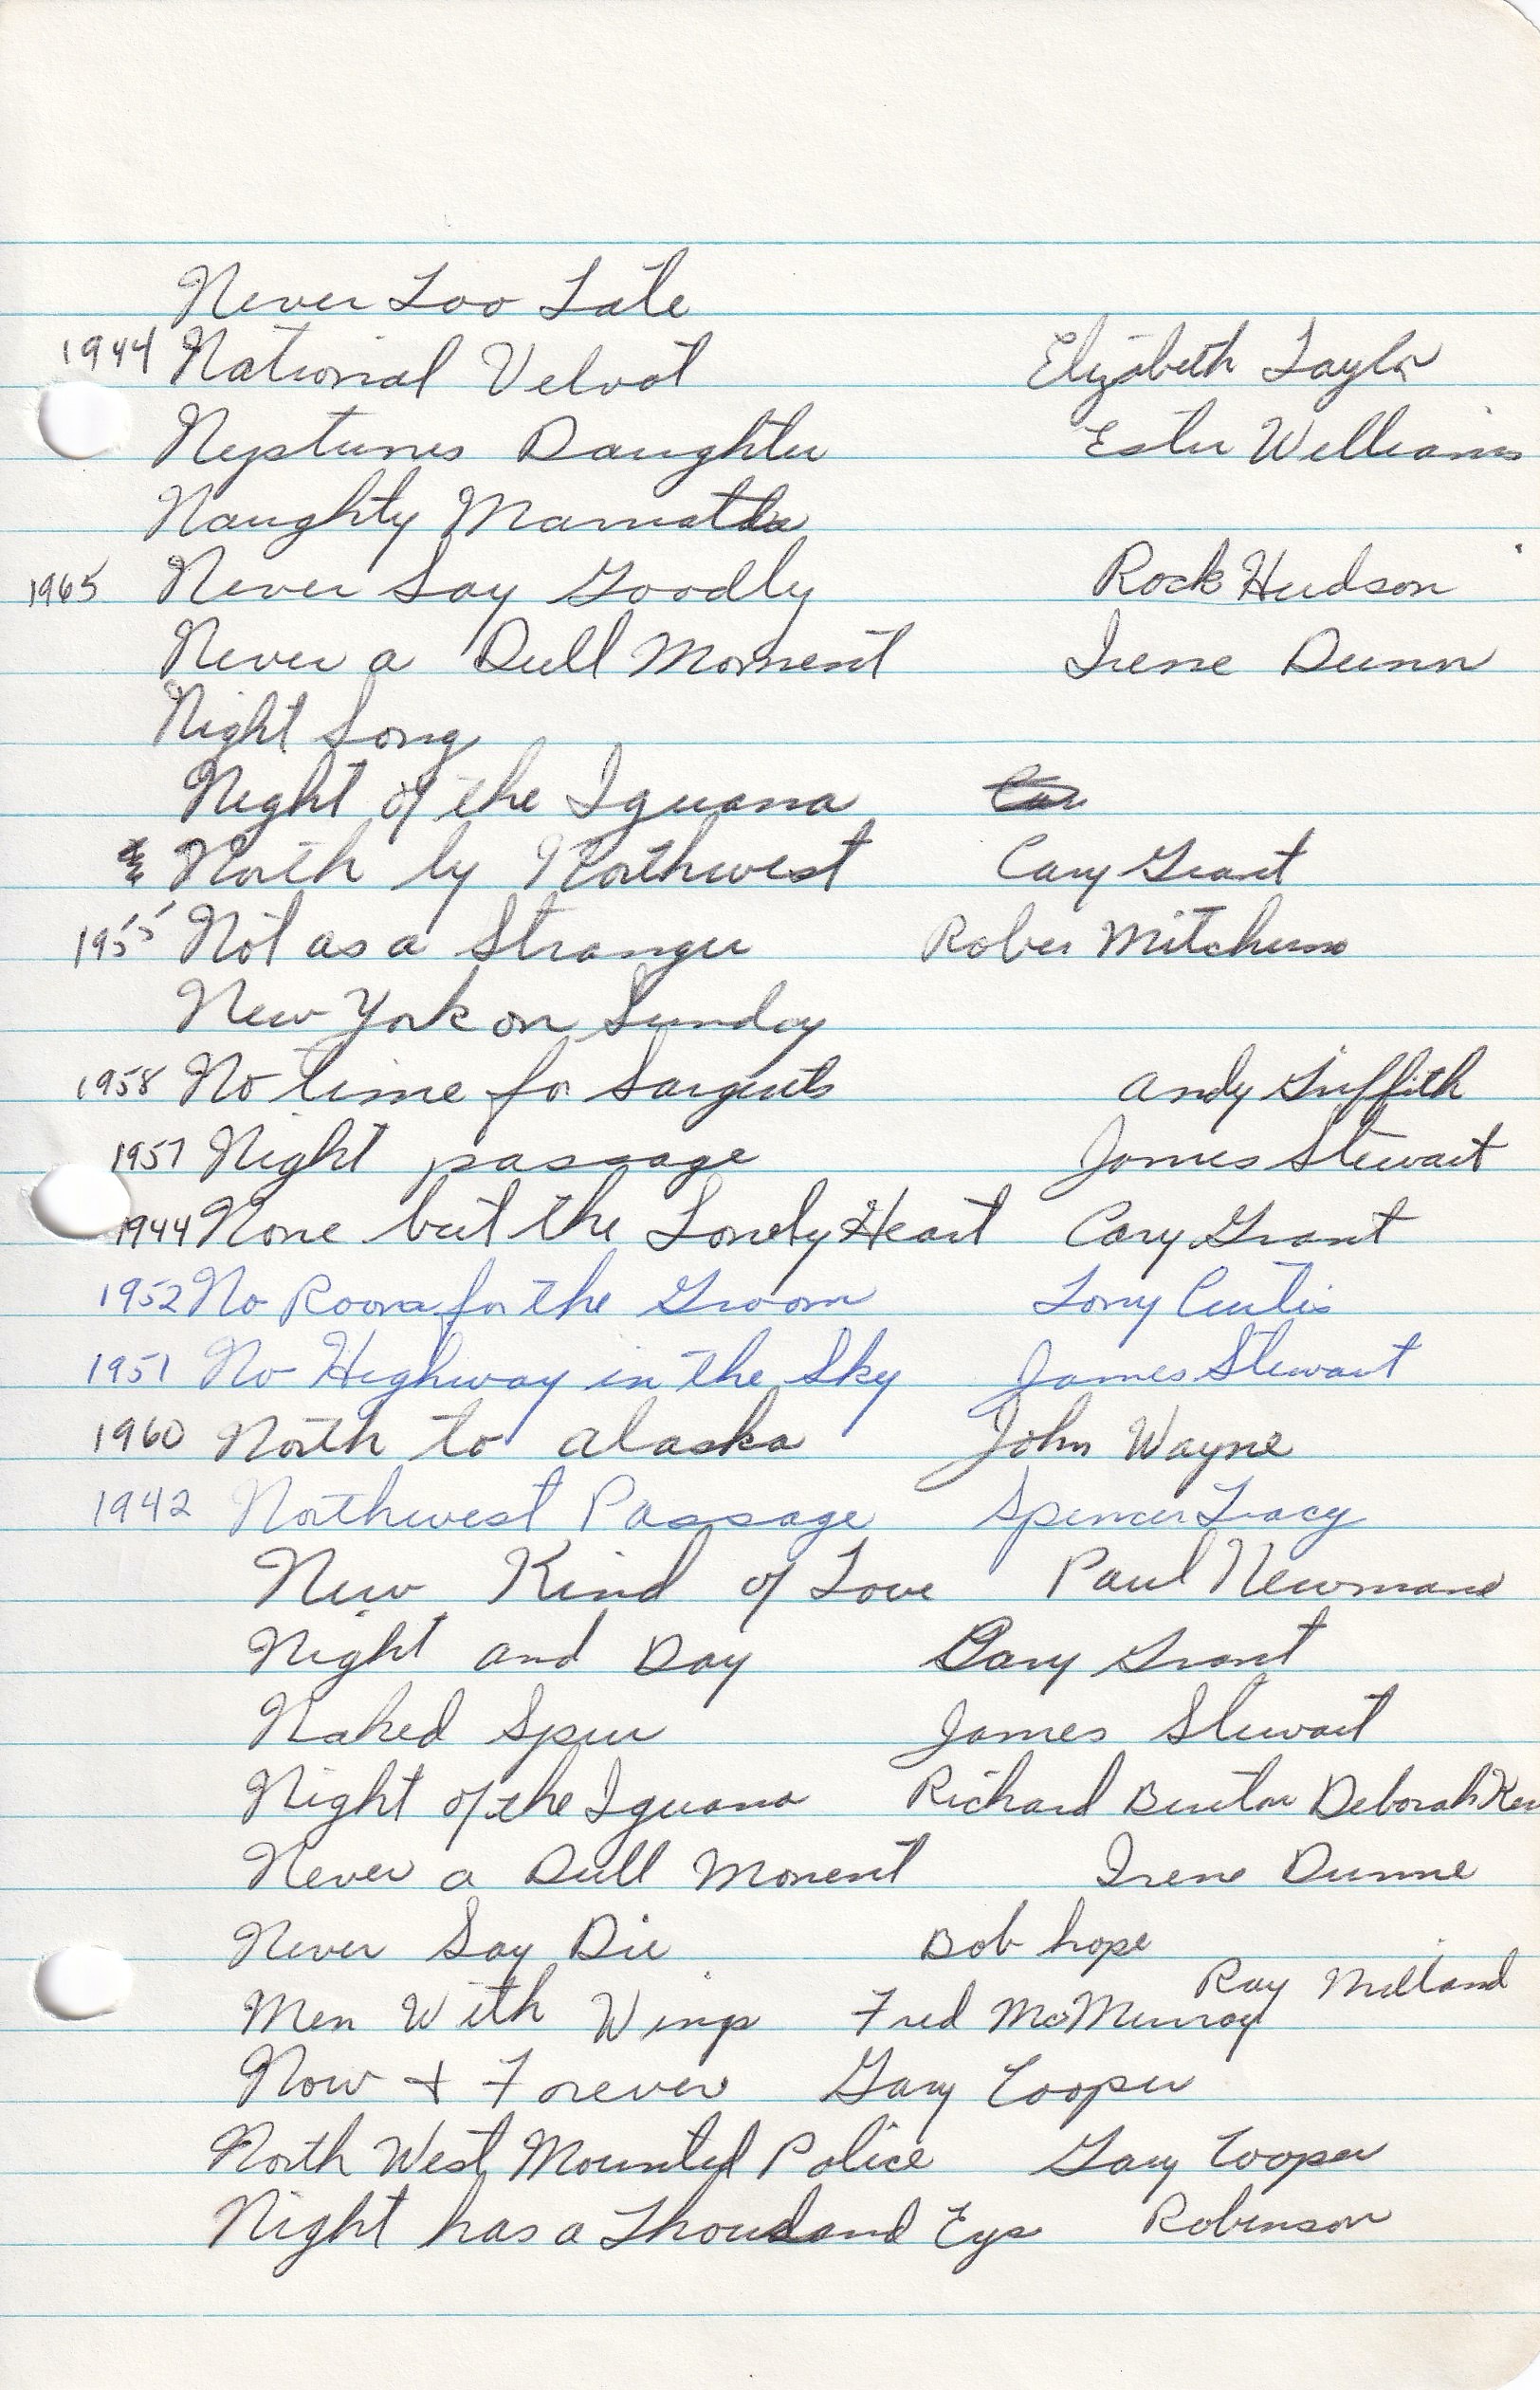 Never Too Late
1944 National Velvet Elizabeth Taylor
Neptunes Daughter Ester Williams
Naughty Marietta
1965 Never Say Goodby Rock Hudson
Never a Dull Moment Irene Dunn
Night Song
Night of the Iguana
North by Northwest Cary Grant
1955 Not as a Stranger Rober Mitchum
New York on Sunday
1958 No time for Sargents Andy Griffith
1957 Night passage James Stewart
1944 None but the Lonely Heart Cary Grant
1952 No Room for the Groom Tony Curtis
1951 No Highway in the Sky James Stewart
1960 North to Alaska John Wayne
1942 Northwest Passage Spencer Tracy
New Kind of Love Paul Newman
Night and Day Cary Grant
Naked Spur James Stewart
Night of the Iguana Richard Burton Deborah
Never a Dull Moment Irene Dunne
Never Say Die Bob hope
Ray Milland
Men With Wings Fred McMurray
Now + Forever Gary Cooper
North West Mounted Police Gary Cooper
Night has a Thousand Eys Robinson